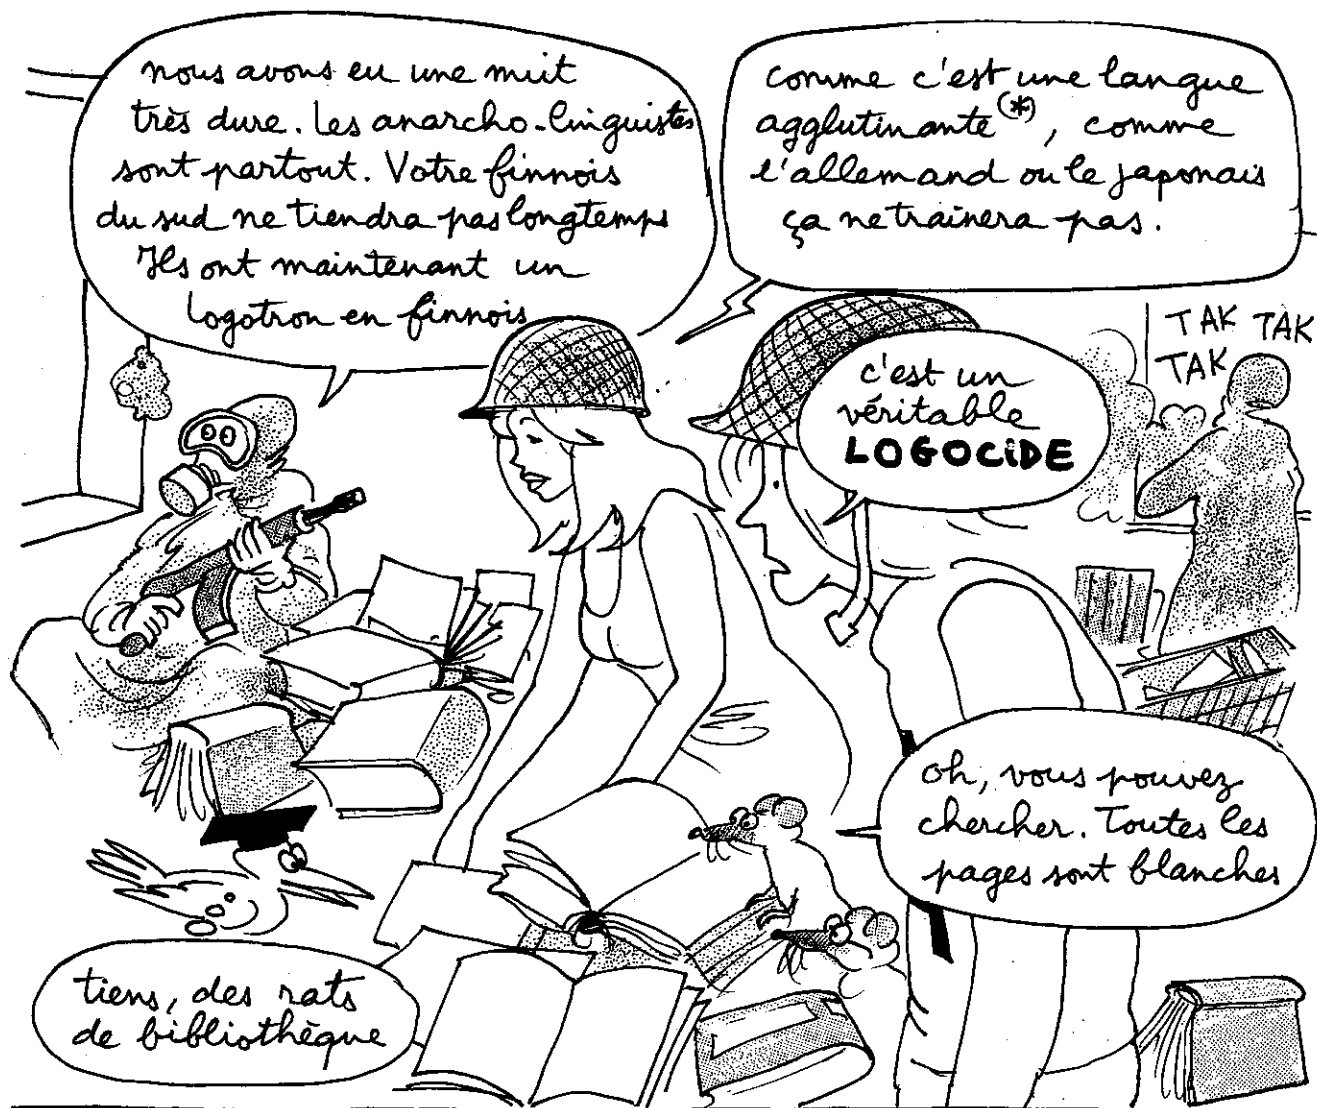 nous avons eu une nuit
très dure. Les anarcho-linguistes
sont partout. Votre finnois
du sud ne tiendra pas longtemps
Ils ont maintenant un
Logotron en finnois
comme c'est une langue
agglutinante(*), comme
l'allemand ou le japonais
ça ne trainera pas.
TAK TAK
TAK
c'est un
véritable
LOGOCiDE
oh, vous pouvez
chercher. Toutes les
pages sont blanches
tiens, des rats
de bibliothèque